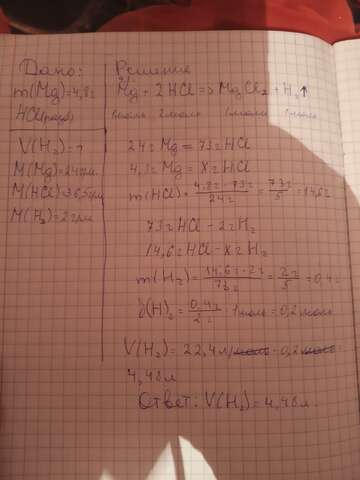 Дано:
m(Mg)=4,8г
HCl(разб)
V(H₂)-?
M(Mg)=24г/моль
M(HCl)=36,5г/моль
M(H₂)=2г/моль
Решение
Mg + 2HCl = Mg₂Cl₂ + H₂↑
1моль 2моль 1моль 1моль
24г Mg = 73г HCl
4,8г Mg = Xг HCl
m(HCl)= 4.8г·73г / 24г = 73г / 5 = 14,6г
73г HCl - 2г H₂
14,6г HCl - xг H₂
m(H₂)= 14,6г·2г / 73г = 2г / 5 = 0,4г
(H)₂= 0,4г / 2г · 1моль = 0,2моль
V(H₂)= 22,4л/моль · 0,2моль =
4,48л
Ответ: V(H₂)=4,48л.